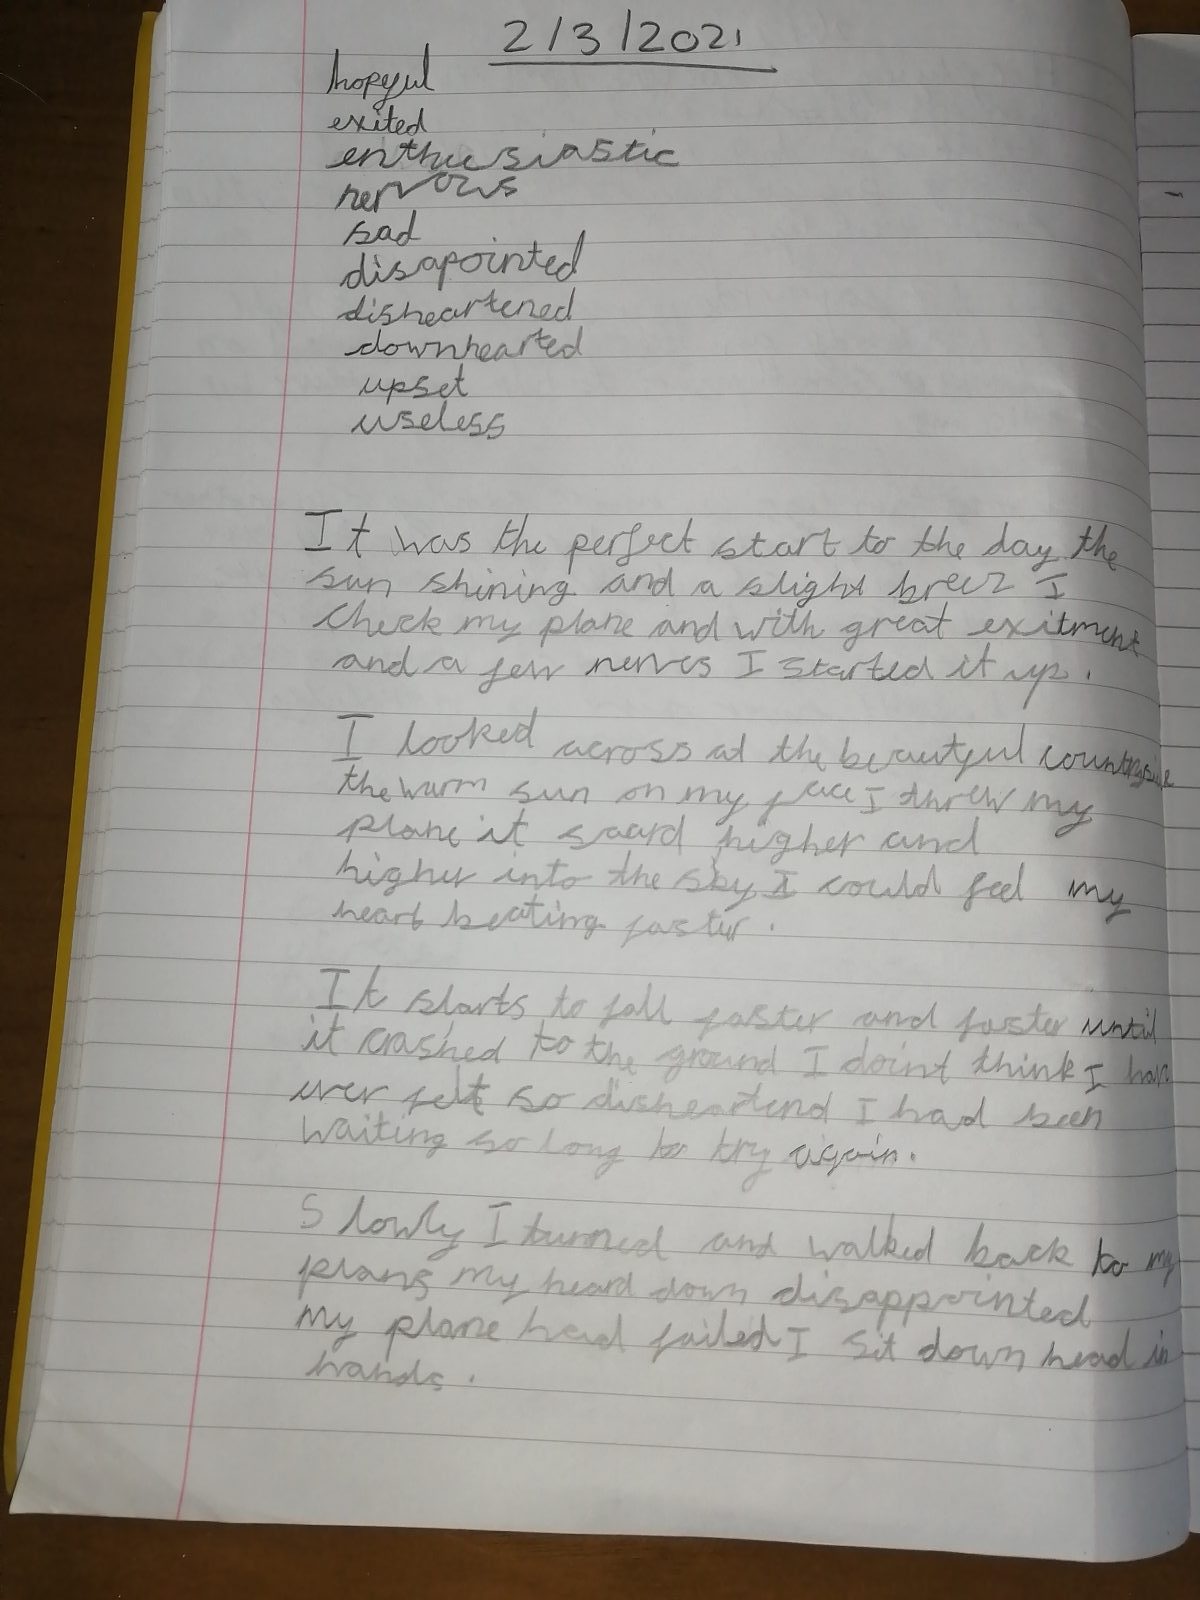 2/3/2021
hopeful
exited
enthuesiastic
nervous
sad
disapointed
disheartened
downhearted
upset
useless
It was the perfect start to the day the
sun shining and a slight breez I
Check my plane and with great exitment
and a few nerves I started it up.
I looked across at the beautful countryside
the warm sun on my face I threw my
plane it saard higher and
higher into the sky I could feel my
heart beating faster.
It starts to fall faster and faster until
it crashed to the ground I doint think I have
ever felt so disheartend I had been
waiting so long to try again.
Slowly I turned and walked back to my
plans my heard down disappointed
my plane had failed I sit down head in
hands.